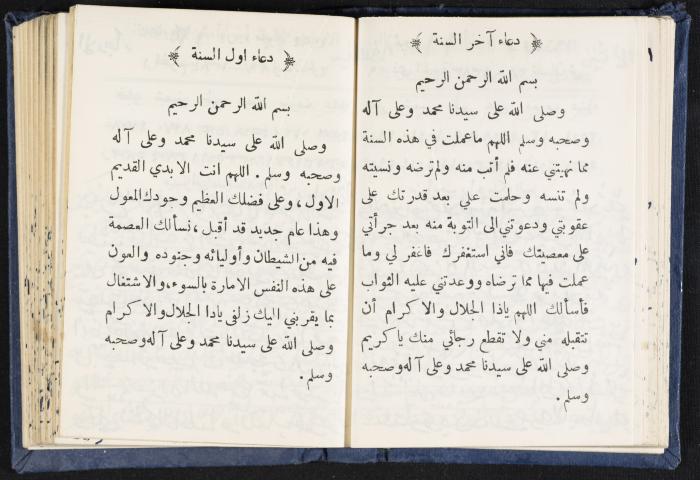 دعاء آخر السنة
بسم الله الرحمن الرحيم
وصلى الله على سيدنا محمد وعلى آله
وصحبه وسلم اللهم ما عملت في هذه السنة
مما نهيتني عنه فلم أتب منه ولم ترضه ونسيته
ولم تنسه وحلمت علي بعد قدرتك على
عقوبتي ودعوتني الى التوبة منه بعد جرأتي
على معصيتك فاني استغفرك فاغفر لي وما
عملت فيها مما ترضاه ووعدتني عليه الثواب
فأسألك اللهم ياذا الجلال والاكرام أن
تتقبله مني ولا تقطع رجائي منك يا كريم
وصلى الله على سيدنا محمد وعلى آله وصحبه
وسلم .
دعاء اول السنة
بسم الله الرحمن الرحيم
وصلى الله على سيدنا محمد وعلى آله
وصحبه وسلم . اللهم انت الابدي القديم
الاول ، وعلى فضلك العظيم وجودك المعول
وهذا عام جديد قد أقبل ، نسألك العصمة
فيه من الشيطان وأوليائه وجنوده والعون
على هذه النفس الامارة بالسوء، والاشتغال
بما يقربني اليك زلفى ياذا الجلال والاكرام
وصلى الله على سيدنا محمد وعلى آله وصحبه
وسلم .